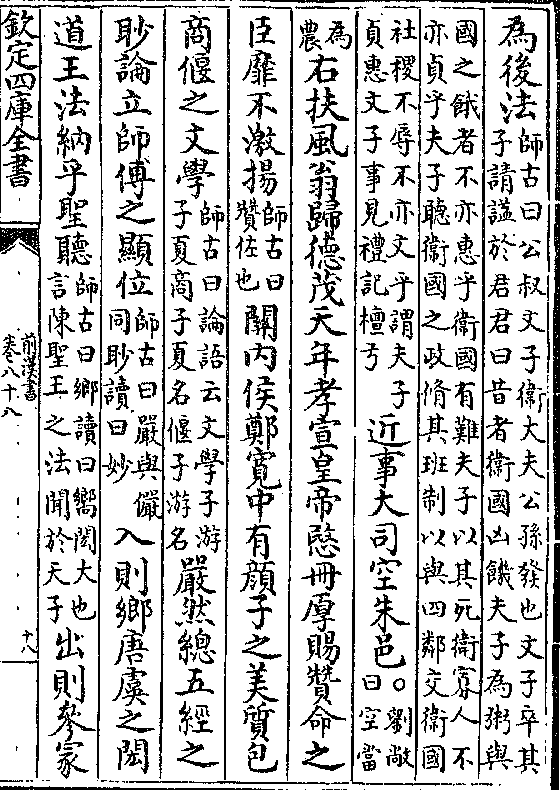 為後法師古曰公叔文子衛大夫公孫發也文子卒其
子請諡於君君曰昔者衛國凶饑夫子為粥與
國之餓者不亦惠乎衛國有難夫子以其死衛寡人不
亦貞乎夫子聽衛國之政脩其班制以與四鄰交衛國
社稷不辱不亦文乎謂夫子
貞惠文子事見禮記檀弓近事大司空朱邑○劉敞
曰空當
為
農右扶風翁歸德茂夭年孝宣皇帝愍冊厚賜贊命之
臣靡不激揚師古曰
贊佐也關内侯鄭寛中有顔子之美質包
商偃之文學師古曰論語云文學子游
子夏商子夏名偃子游名嚴然總五經之
眇論立師傅之顯位師古曰嚴與儼
同眇讀曰妙入則鄉唐虞之閎
道王法納乎聖聽師古曰鄉讀曰嚮閎大也
言陳聖王之法聞於天子出則參冢
欽定四庫全書
前漢書
卷八十八
十八